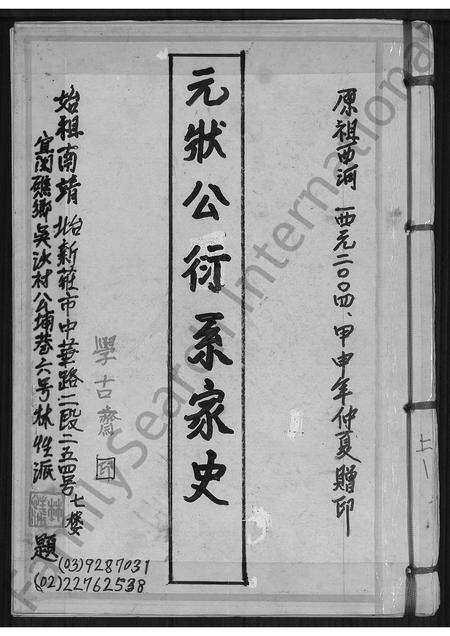 原祖西河 西元二〇〇四、甲申年仲夏贈印
元狀公衍系家史
學古齋
始祖南靖 北台新莊市中華路二段二五四號七樓
宜蘭礁鄉吳沙村公埔巷六号林性派
題
(03)9287031
(02)22762538
上
FamilySearch International